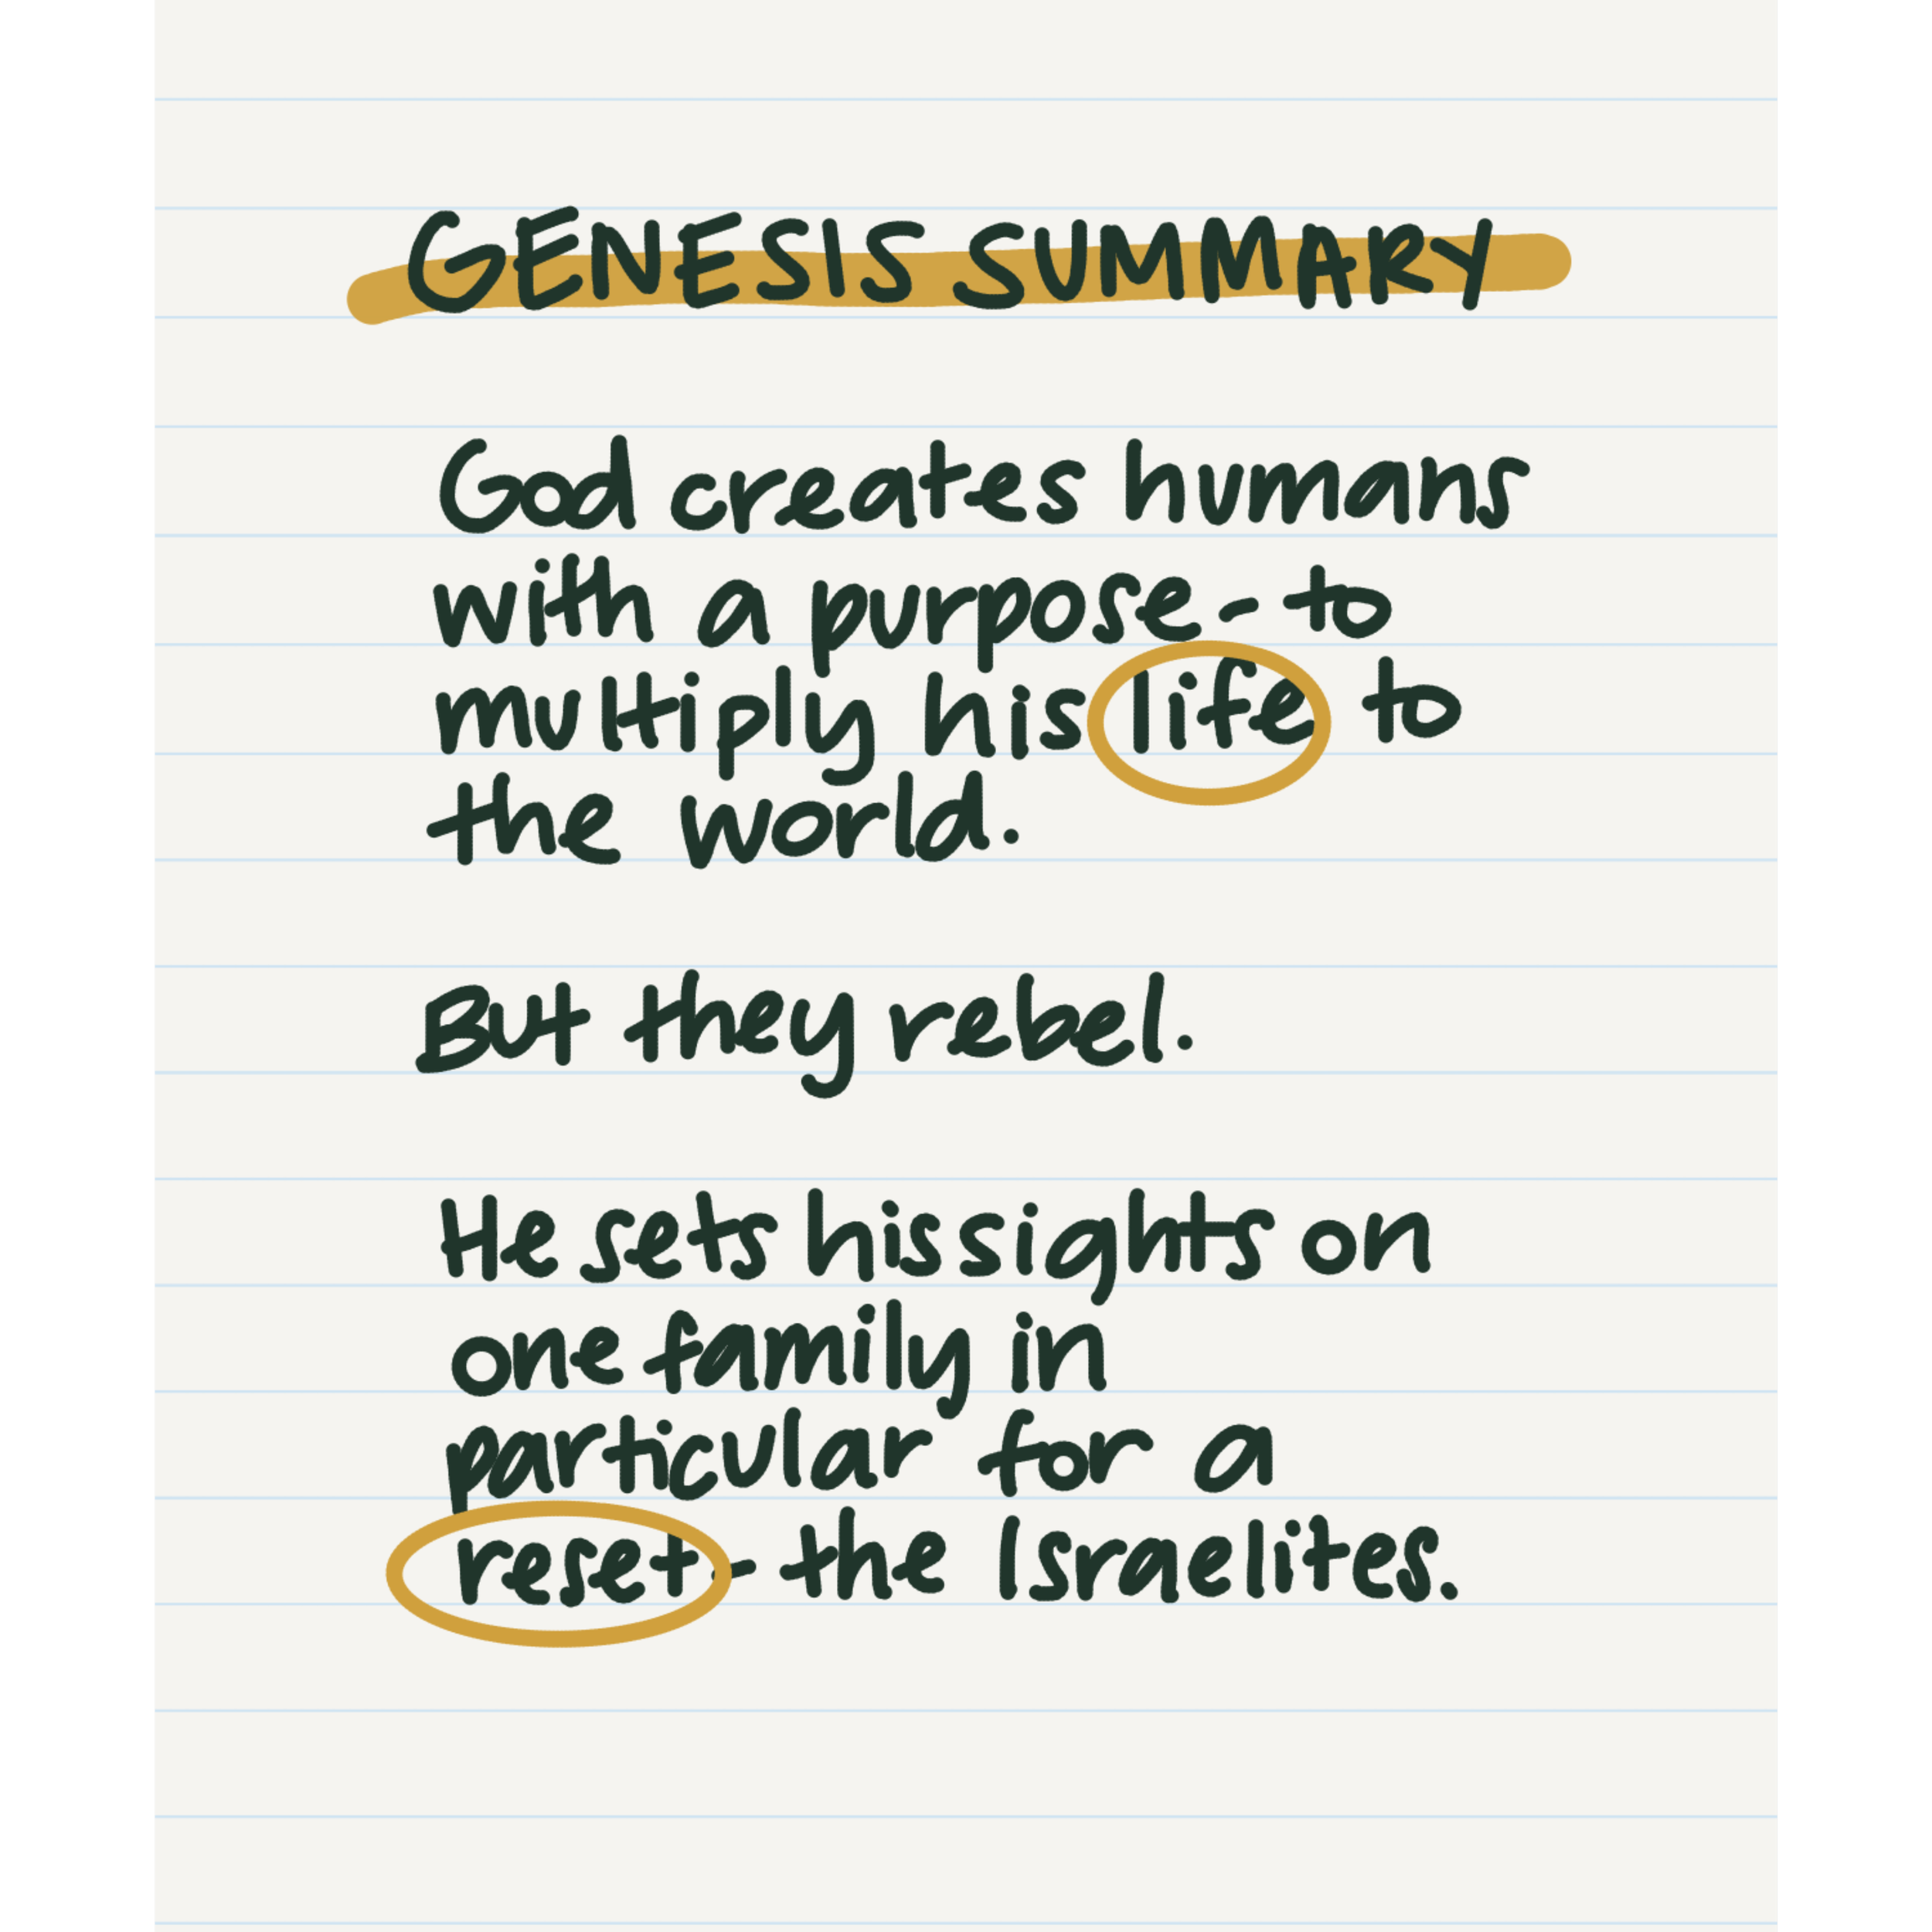 GENESIS SUMMARY
God creates humans
with a purpose - to
multiply his life to
the world.
But they rebel.
He sets his sights on
one family in
particular for a
reset - the Israelites.